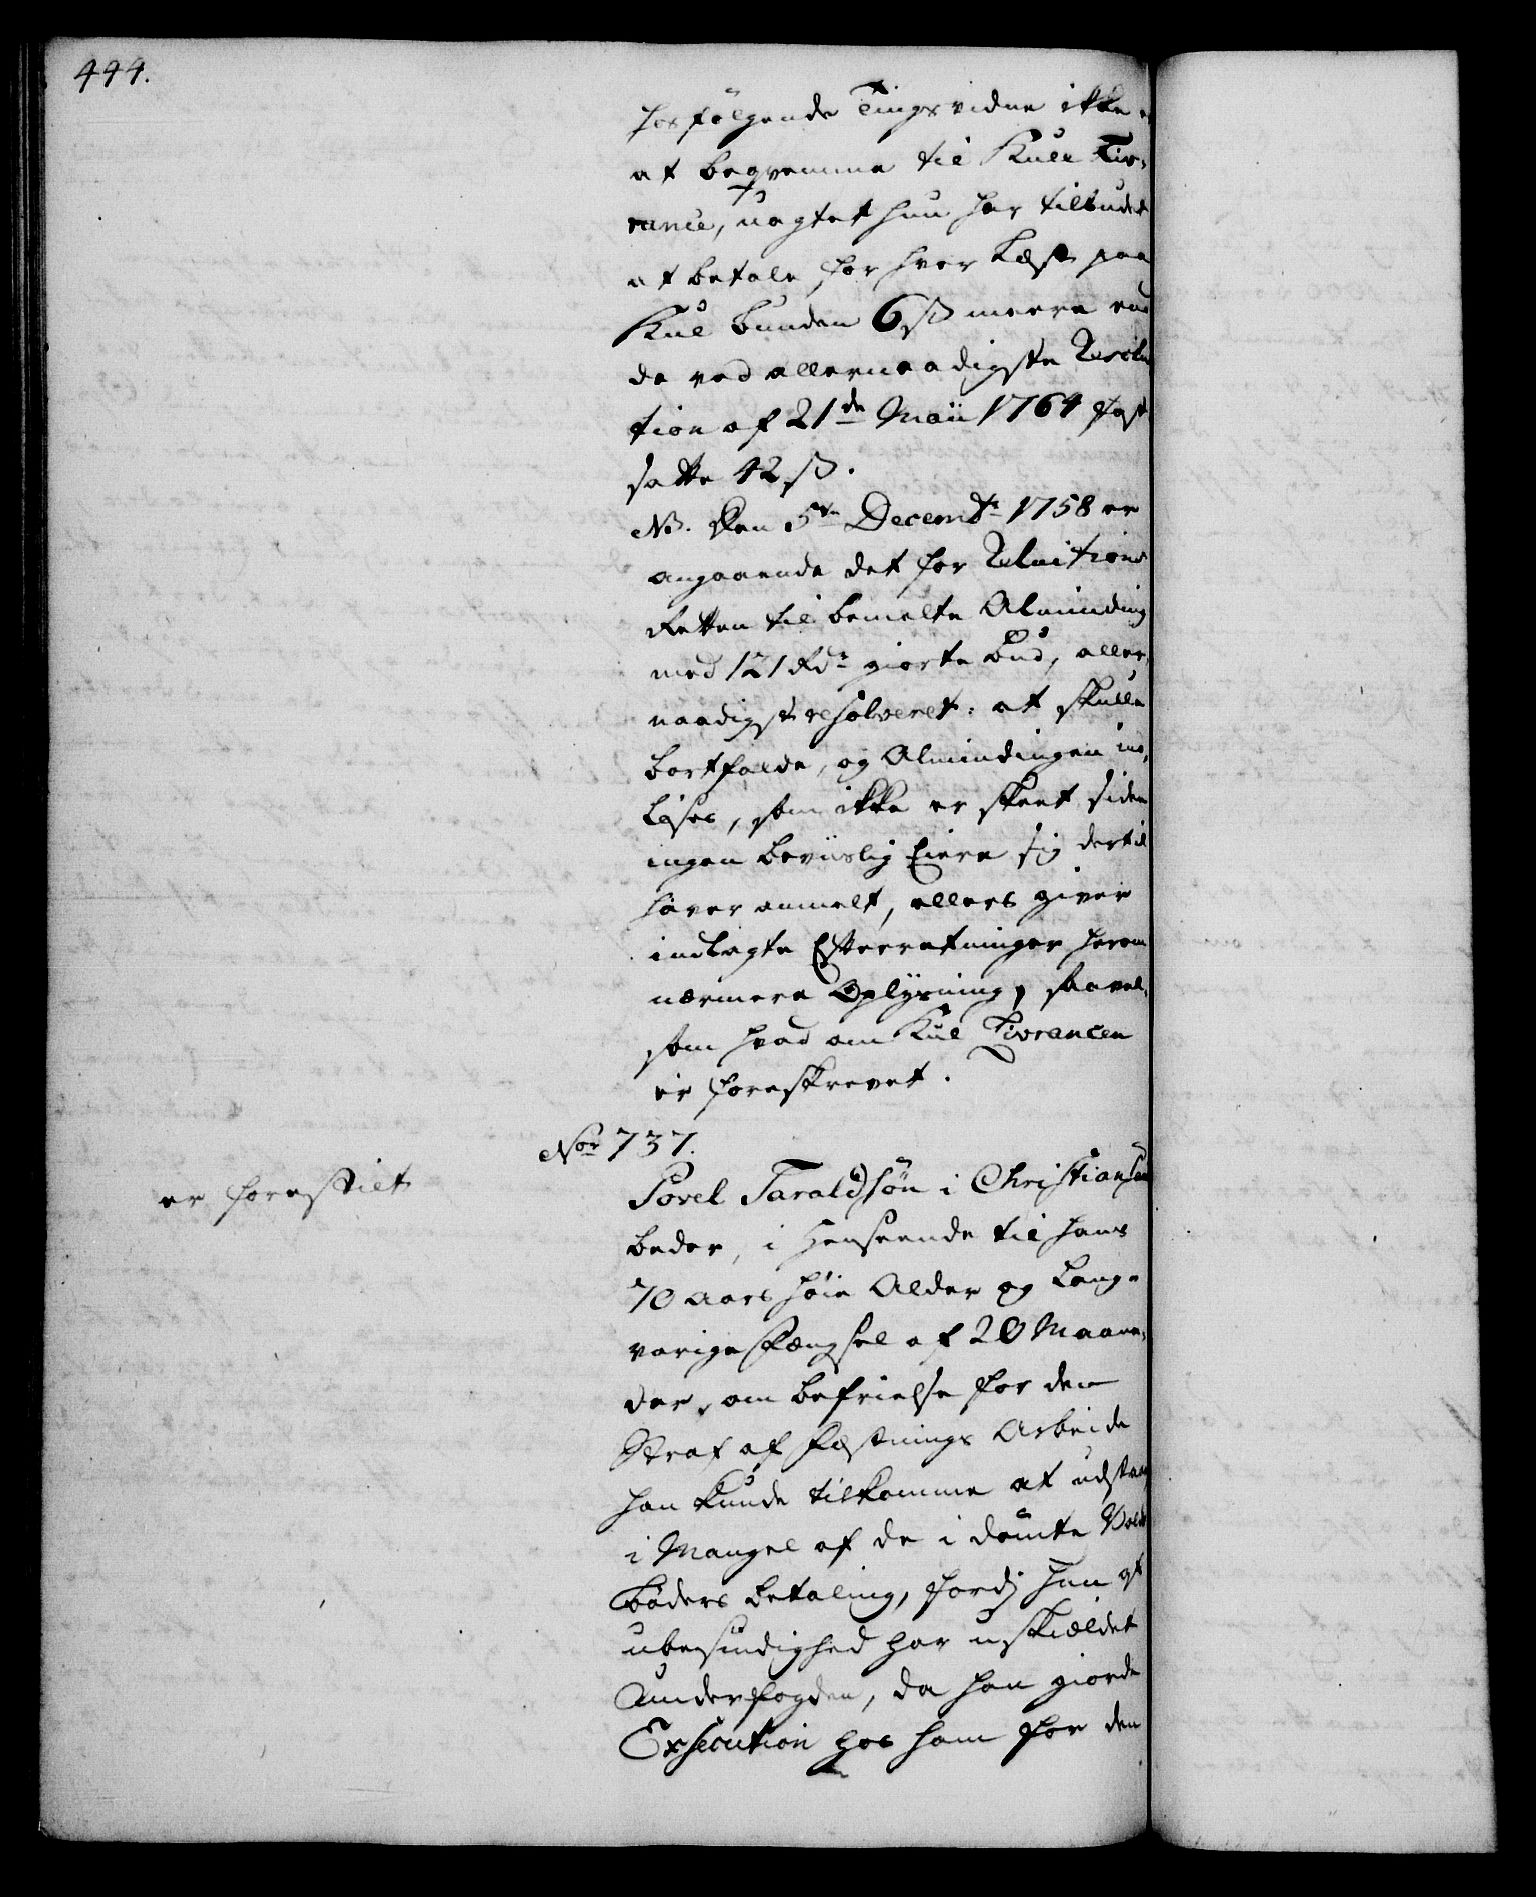 444.
hosfølgende Tingsvidne ikke
at beqvemme til Kull Liv-
rance, uagtet hun har tilbudet
at betale for hver Læst paa
Kul bunden 6 ß meere end
de ved allernaadigste Resolu
tion af 21de Maii 1764 fast
satte 42 ß.
NB. Den 5te Decembr 1758 er
angaaende det for Reluitions
Retten til bemelte Alminding
med 121 Rdr giorte Bud, aller-
naadigst resolveret: at skulle
bortfalde, og Almindingen ind-
løses, som ikke er skeet siden
ingen beviislig Eiere sig dertil
haver anmelt, ellers giver
indlagte Efterretninger herom
nærmere Oplysning, saavel-
som hvad om Kul Livrancen
er foreskrevet.
Nor 737.
er forestilt
Povel Taraldsøn i Christiansan
beder, i Henseende til hans
70 aars høie Alder og lang-
varige Fængsel af 20 Maane-
der, om befrielse for den
Straf af Fæstnings Arbeide
han kunde tilkomme at udstaae
i Mangel af de i dømte Volds
bøders betaling, fordj han af
ubesindighed har uskieldet
Underfogden, da han giorde
Exsecution hos ham for den